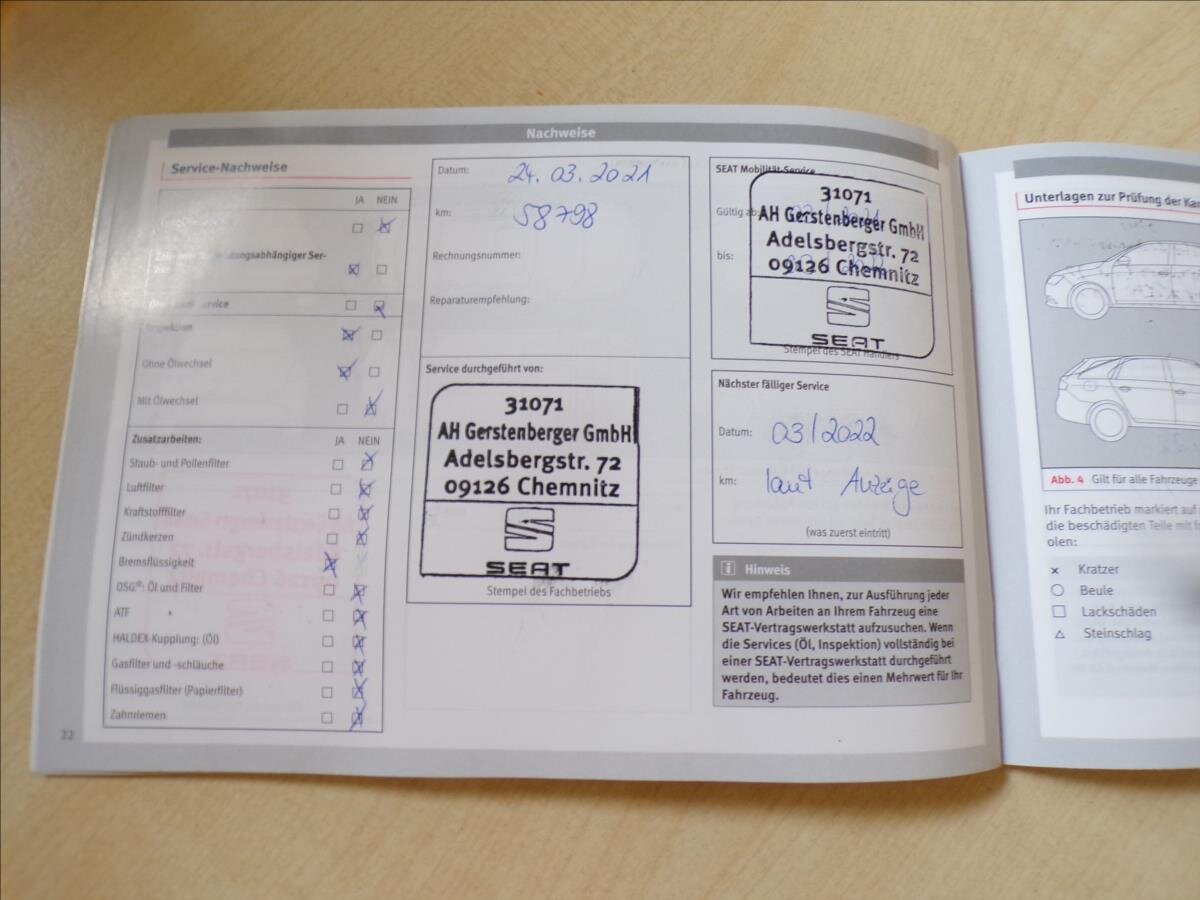 Nachweise
Service-Nachweise
JA NEIN
ngsabhängiger Ser-
rvice
Inspektion
Ohne Ölwechsel
Mit Ölwechsel
Zusatzarbeiten: JA NEIN
Staub- und Pollenfilter
Luftfilter
Kraftstofffilter
Zündkerzen
Bremsflüssigkeit
DSG®: Öl und Filter
ATF
HALDEX-Kupplung: (Öl)
Gasfilter und -schläuche
Flüssiggasfilter (Papierfilter)
Zahnriemen
22
Datum: 24.03.2021
km: 58798
Rechnungsnummer:
Reparaturempfehlung:
Service durchgeführt von:
31071
AH Gerstenberger GmbH
Adelsbergstr. 72
09126 Chemnitz
SEAT
Stempel des Fachbetriebs
SEAT Mobilität-Service
Gültig ab:
bis:
31071
AH Gerstenberger GmbH
Adelsbergstr. 72
09126 Chemnitz
SEAT
Stempel des SEAT Händlers
Nächster fälliger Service
Datum: 03/2022
km: laut Anzeige
(was zuerst eintritt)
i Hinweis
Wir empfehlen Ihnen, zur Ausführung jeder
Art von Arbeiten an Ihrem Fahrzeug eine
SEAT-Vertragswerkstatt aufzusuchen. Wenn
die Services (Öl, Inspektion) vollständig bei
einer SEAT-Vertragswerkstatt durchgeführt
werden, bedeutet dies einen Mehrwert für Ihr
Fahrzeug.
Unterlagen zur Prüfung der Kar
Abb. 4 Gilt für alle Fahrzeuge
Ihr Fachbetrieb markiert auf
die beschädigten Teile mit
olen:
Kratzer
Beule
Lackschäden
Steinschlag